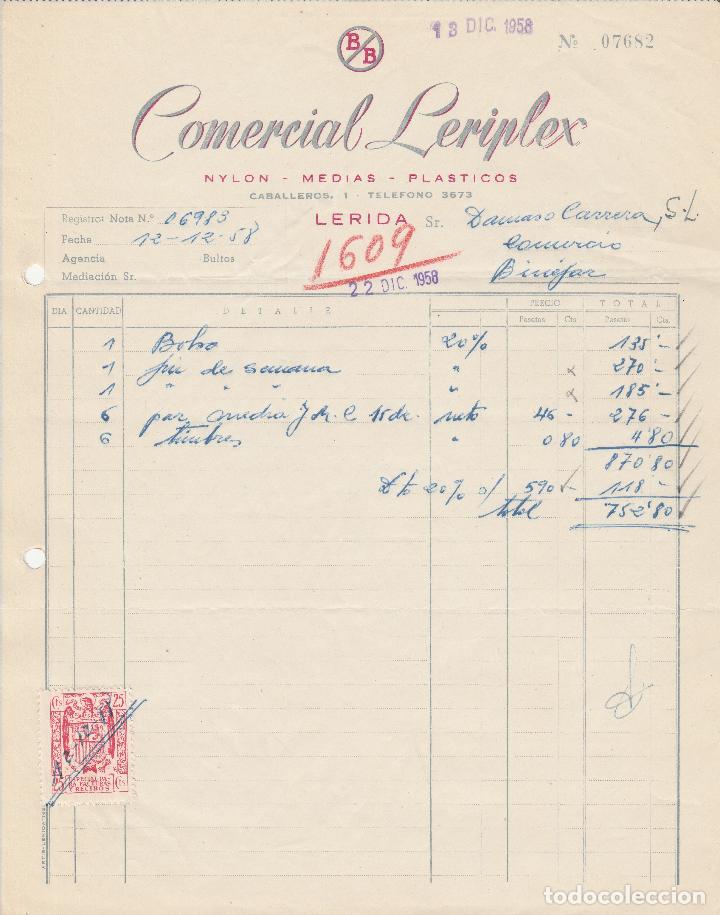 13 DIC. 1958
Nº 07682
B B
Comercial Leriplex
NYLON - MEDIAS - PLASTICOS
CABALLEROS, 1 - TELEFONO 3673
LERIDA
Registro: Nota N.º 06983
Fecha 12-12-58
Agencia Bultos
Mediación Sr.
Sr. Damaso Carrera, S.L.
Comercio
Binéfar
1609
22 DIC. 1958
DIA CANTIDAD DETALLE PRECIO TOTAL
Pesetas Cts. Pesetas Cts.
1 Bolso 20% 135'-
1 fin de semana " 270'-
1 " " " " 185'-
6 par media J.M.C. 15 de. neto 46 - 276 -
6 timbres " 0 80 4'80
870'80
Dto 20% s/ 590 - 118'-
total 752'80
Cts 25
12-12-58
ESPECIAL PA-
RA FACTURAS
Y RECIBOS
25 Cts
todocoleccion
todocoleccion.net